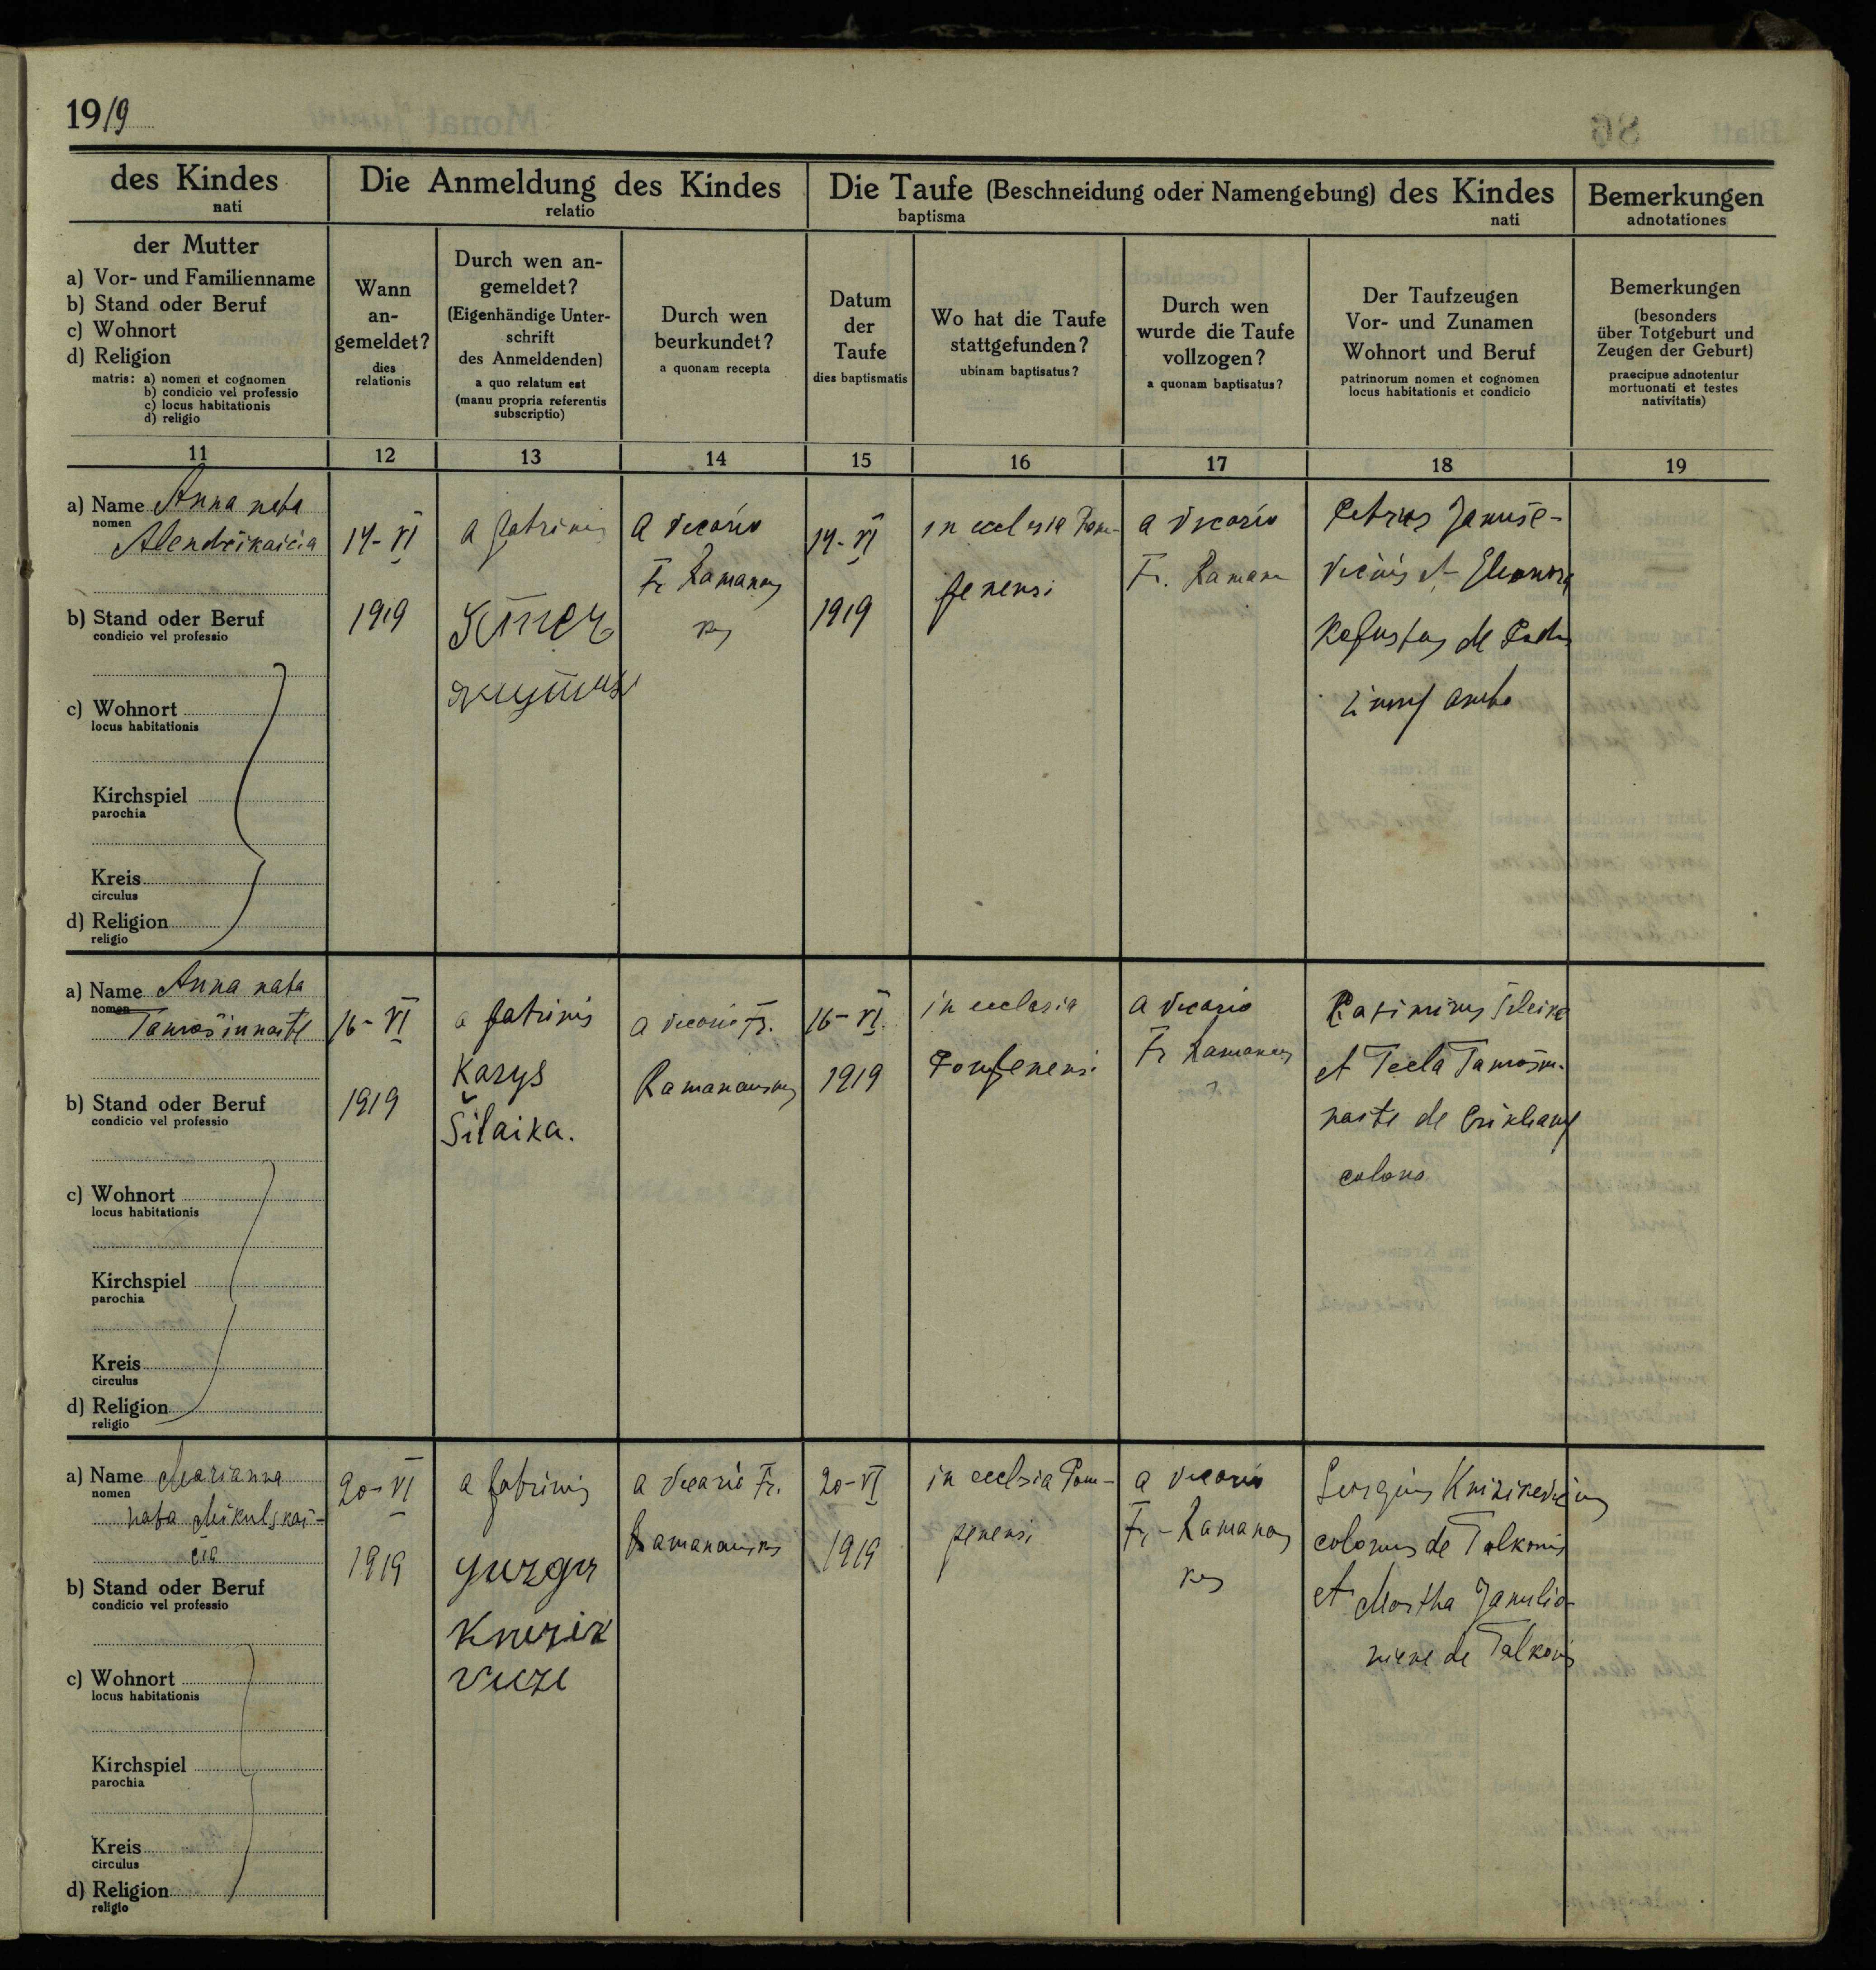 1919
des Kindes
nati
Die Anmeldung des Kindes
relatio
Die Taufe (Beschneidung oder Namengebung) des Kindes
baptisma nati
Bemerkungen
adnotationes
der Mutter
a) Vor- und Familienname
b) Stand oder Beruf
c) Wohnort
d) Religion
matris: a) nomen et cognomen
b) condicio vel professio
c) locus habitationis
d) religio
Wann
an-
gemeldet?
dies
relationis
Durch wen an-
gemeldet?
(Eigenhändige Unter-
schrift
des Anmeldenden)
a quo relatum est
(manu propria referentis
subscriptio)
Durch wen
beurkundet?
a quonam recepta
Datum
der
Taufe
dies baptismatis
Wo hat die Taufe
stattgefunden?
ubinam baptisatus?
Durch wen
wurde die Taufe
vollzogen?
a quonam baptisatus?
Der Taufzeugen
Vor- und Zunamen
Wohnort und Beruf
patrinorum nomen et cognomen
locus habitationis et condicio
Bemerkungen
(besonders
über Totgeburt und
Zeugen der Geburt)
praecipue adnotentur
mortuonati et testes
nativitatis)
11 12 13 14 15 16 17 18 19
a) Name Anna nata
nomen
b) Stand oder Beruf
condicio vel professio
c) Wohnort
locus habitationis
Kirchspiel
parochia
Kreis
circulus
d) Religion
religio
14-VI
1919
a patrinis
a vicario
Fr Ramanaus
kas
14-VI
1919
in ecclesia Pom-
penensi
a vicario
Fr. Ramana
Petrus Januše-
vičius et Eleonora
de
ambo
a) Name Anna nata
nomen
Tamošiunaite
b) Stand oder Beruf
condicio vel professio
c) Wohnort
locus habitationis
Kirchspiel
parochia
Kreis
circulus
d) Religion
religio
16-VI
1919
a patrinis
Kazys
Šilaika.
a vicario Fr.
Ramanauskas
16-VI.
1919
in ecclesia
Pompenensi
a vicario
Fr Ramanaus
Kasimirus Šileika
et Tecla Tamošiu-
naite de
colono
a) Name Marianna
nomen
nata Mikulskai-
cia
b) Stand oder Beruf
condicio vel professio
c) Wohnort
locus habitationis
Kirchspiel
parochia
Kreis
circulus
d) Religion
religio
20-VI
1919
a patrinis
Jurgis
Knizik
a vicario Fr.
Ramanauskas
20-VI
1919
in ecclesia Pom-
penensi
a vicario
Fr-Ramanaus
kas
Georgius Knizikevicius
colonus de Talkonis
et Martha Janulio-
niene de Talkonis